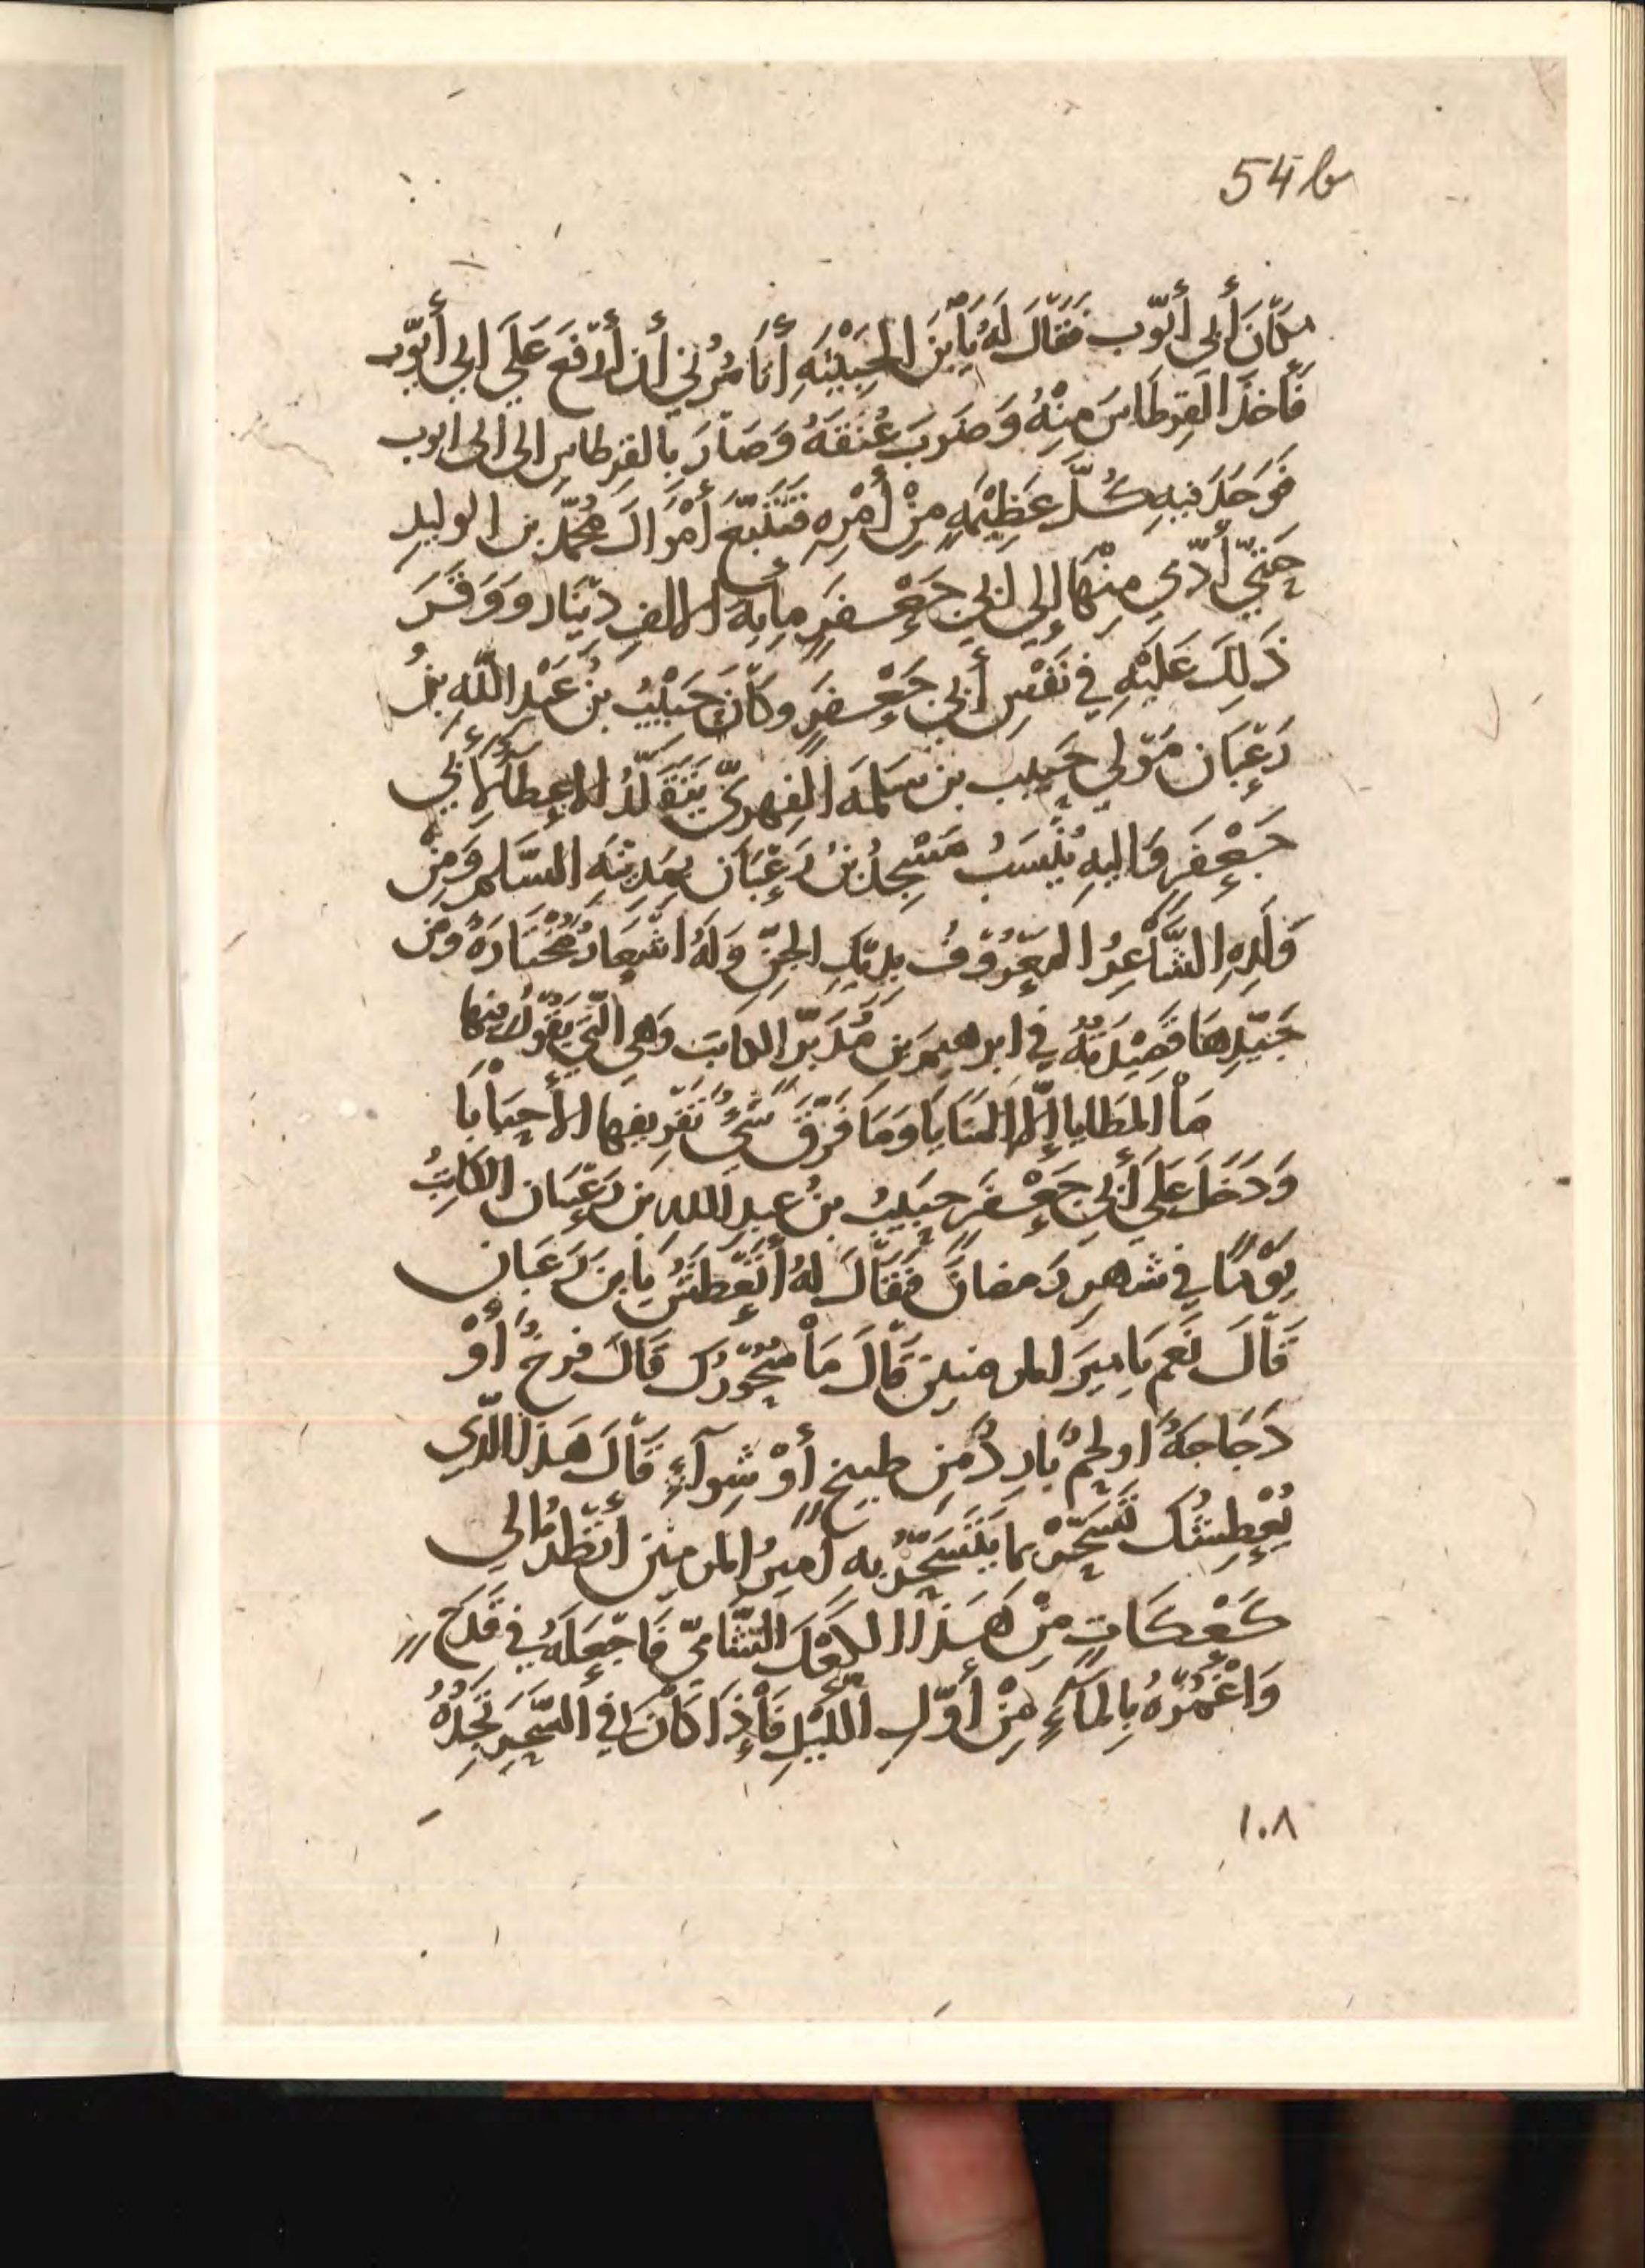 54 b
مكَانَ أَبي أَيّوب فَقَالَ لَهُ يَا ٱبْنَ الخَبِيْثَهِ أَتَأمُرُني أن أَرْفعَ عَلَي ابي أيّوب
فَاَخذَ القِرطَاسَ مِنْهُ وَضَرَبَ عُنَقَهُ وَصَارَ بالقِرطاسِ الى ابى ايوب
فَوَجَدَ فيهِ كُلَّ عَظِيْمَهٍ مِنْ أَمْرِهِ فَتَتَبَّعَ أَمْوَالَ مُحَمّدِ بن الوليدِ
حَتيّ أَدّي مِنْهَا إلي ابي جَعْفَرٍ مِايهَ الفِ دِيْنَارٍ وَوَقَرَ
ذَلِكَ عَلَيْهِ في نَفْسِ أَبي جَعْفَرٍ وكَانَ حَبِيْبُ بنُ عَبْدِ اللّهِ بنُ
رَغْبَانَ مَوْلي حَبِيب بن سَلمَه الفِهرِيّ يَتَقَلَّدُ الاعطَآءَ لأَبي
جَعْفَرٍ وَاليهِ يُنْسَبُ مَسْجِدُ بنُ رَغْبَانَ بِمَدِيْنَهِ السَّلمِ وَمِنْ
وَلَدِهِ الشَّاعِرُ المَعْرُوْفُ بِدِيْكِ الجِنِّ وَلَهُ اشْعَارٌ مُخْتَارَهٌ وَمن
جَيّدِهَا قَصِيْدَتُهُ في ابرهيمَ بن مُدَبِّر الكاتبَ وَهي الّتي يَقُوْلُ فيها
مَا المَطَايا إلّا المَنَايَا وَمَا فَرّقَ شَيْءٌ تَفْرِيقها الأَحبَابَا
وَدَخَلَ عَلَي أَبي جَعْفَرٍ حَبِيْبُ بنُ عَبدِ اللهِ بن رَغْبَانَ الكَاتِبُ
يَوْمًا في شهرِ رَمضانَ فَقَالَ لهُ أَتَعْطَشُ يا ابنَ رَغبَان
قَالَ نَعم يَامِيرَ المومنين قَالَ مَا سَحُوْرُك قَالَ فرخٌ أَوْ
دَجَاجَهٌ اولحمٌ بَارِدٌ مِن طبيخٍ أَوْ شِوآءٍ قَالَ هَذَا الّذي
يُعْطِشُكَ تَسَحّرْ بما يَتَسَحّرُ به أميرُ المومنين أنظُر الي
كَعْكَاتٍ مِنْ هَذَا الكَعْكِ الشّامِيّ فَاجْعَلهُ في قَدَحٍ
وَاغْمُرْهُ بِالمَآءِ مِنْ أَوّلِ اللّيْلِ فَإذَا كَانَ في السَّحَرِ تَجِدُهُ
١٠٨